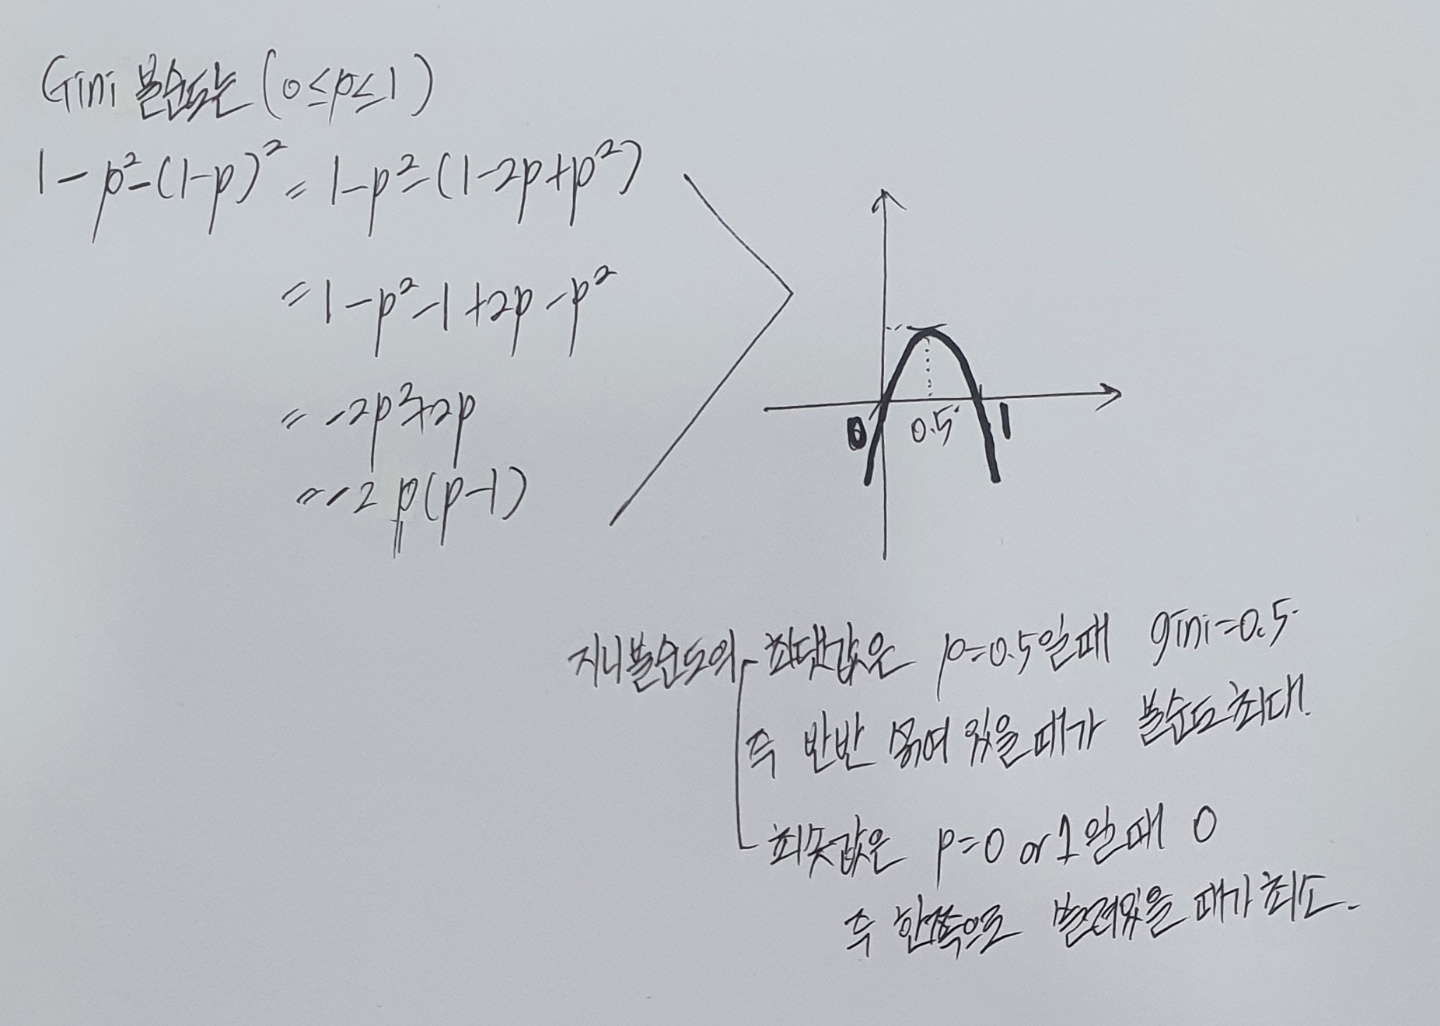 Gini 불순도는 (0≤p≤1)
1-p²-(1-p)² = 1-p²-(1-2p+p²)
= 1-p²-1+2p-p²
= -2p²+2p
= -2p(p-1)
0 0.5 1
지니불순도의 최댓값은 p=0.5일때 gini=0.5
즉 반반 섞여 있을때가 불순도 최대.
최솟값은 p=0 or 1 일때 0
즉 한쪽으로 쏠려있을때가 최소.